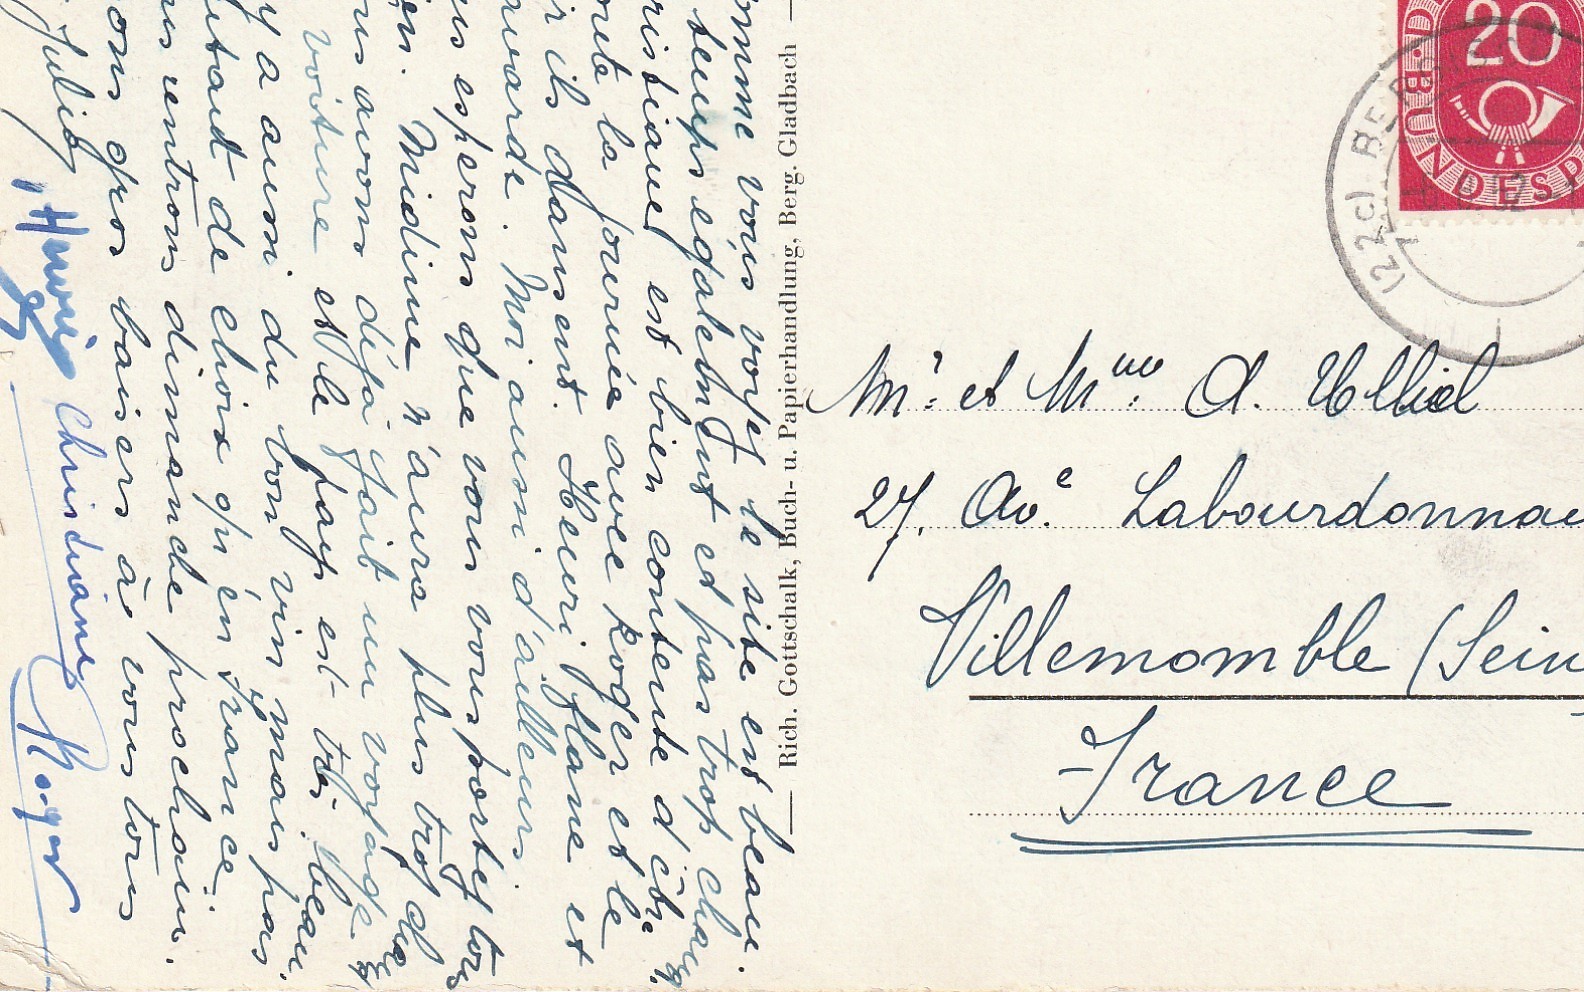 omme vous voyez le site est beau.
temps egalement et pas trop chaud
ristiane est bien contente d'être
toute la journée avec Roger et le
soir ils dansent. Henri flane et
. Moi aussi d'ailleurs
us esperons que vous vous portez tous
ien. Midine n'aura plus trop de
us avons déja fait un voyage
voiture et le pays est très beau.
y a aussi du bon vin mais pas
autant de choix qu'en France.
us rentrons dimanche prochain.
ons gros baisers à vous tous
Juliette
Henri
Christiane
Roger
Rich. Gottschalk, Buch- u. Papierhandlung, Berg. Gladbach
20
BUNDESP
(22c) BERG
Mr. et Mme. A.
27. Ave. Labourdonnai
Villemomble (Sein
France